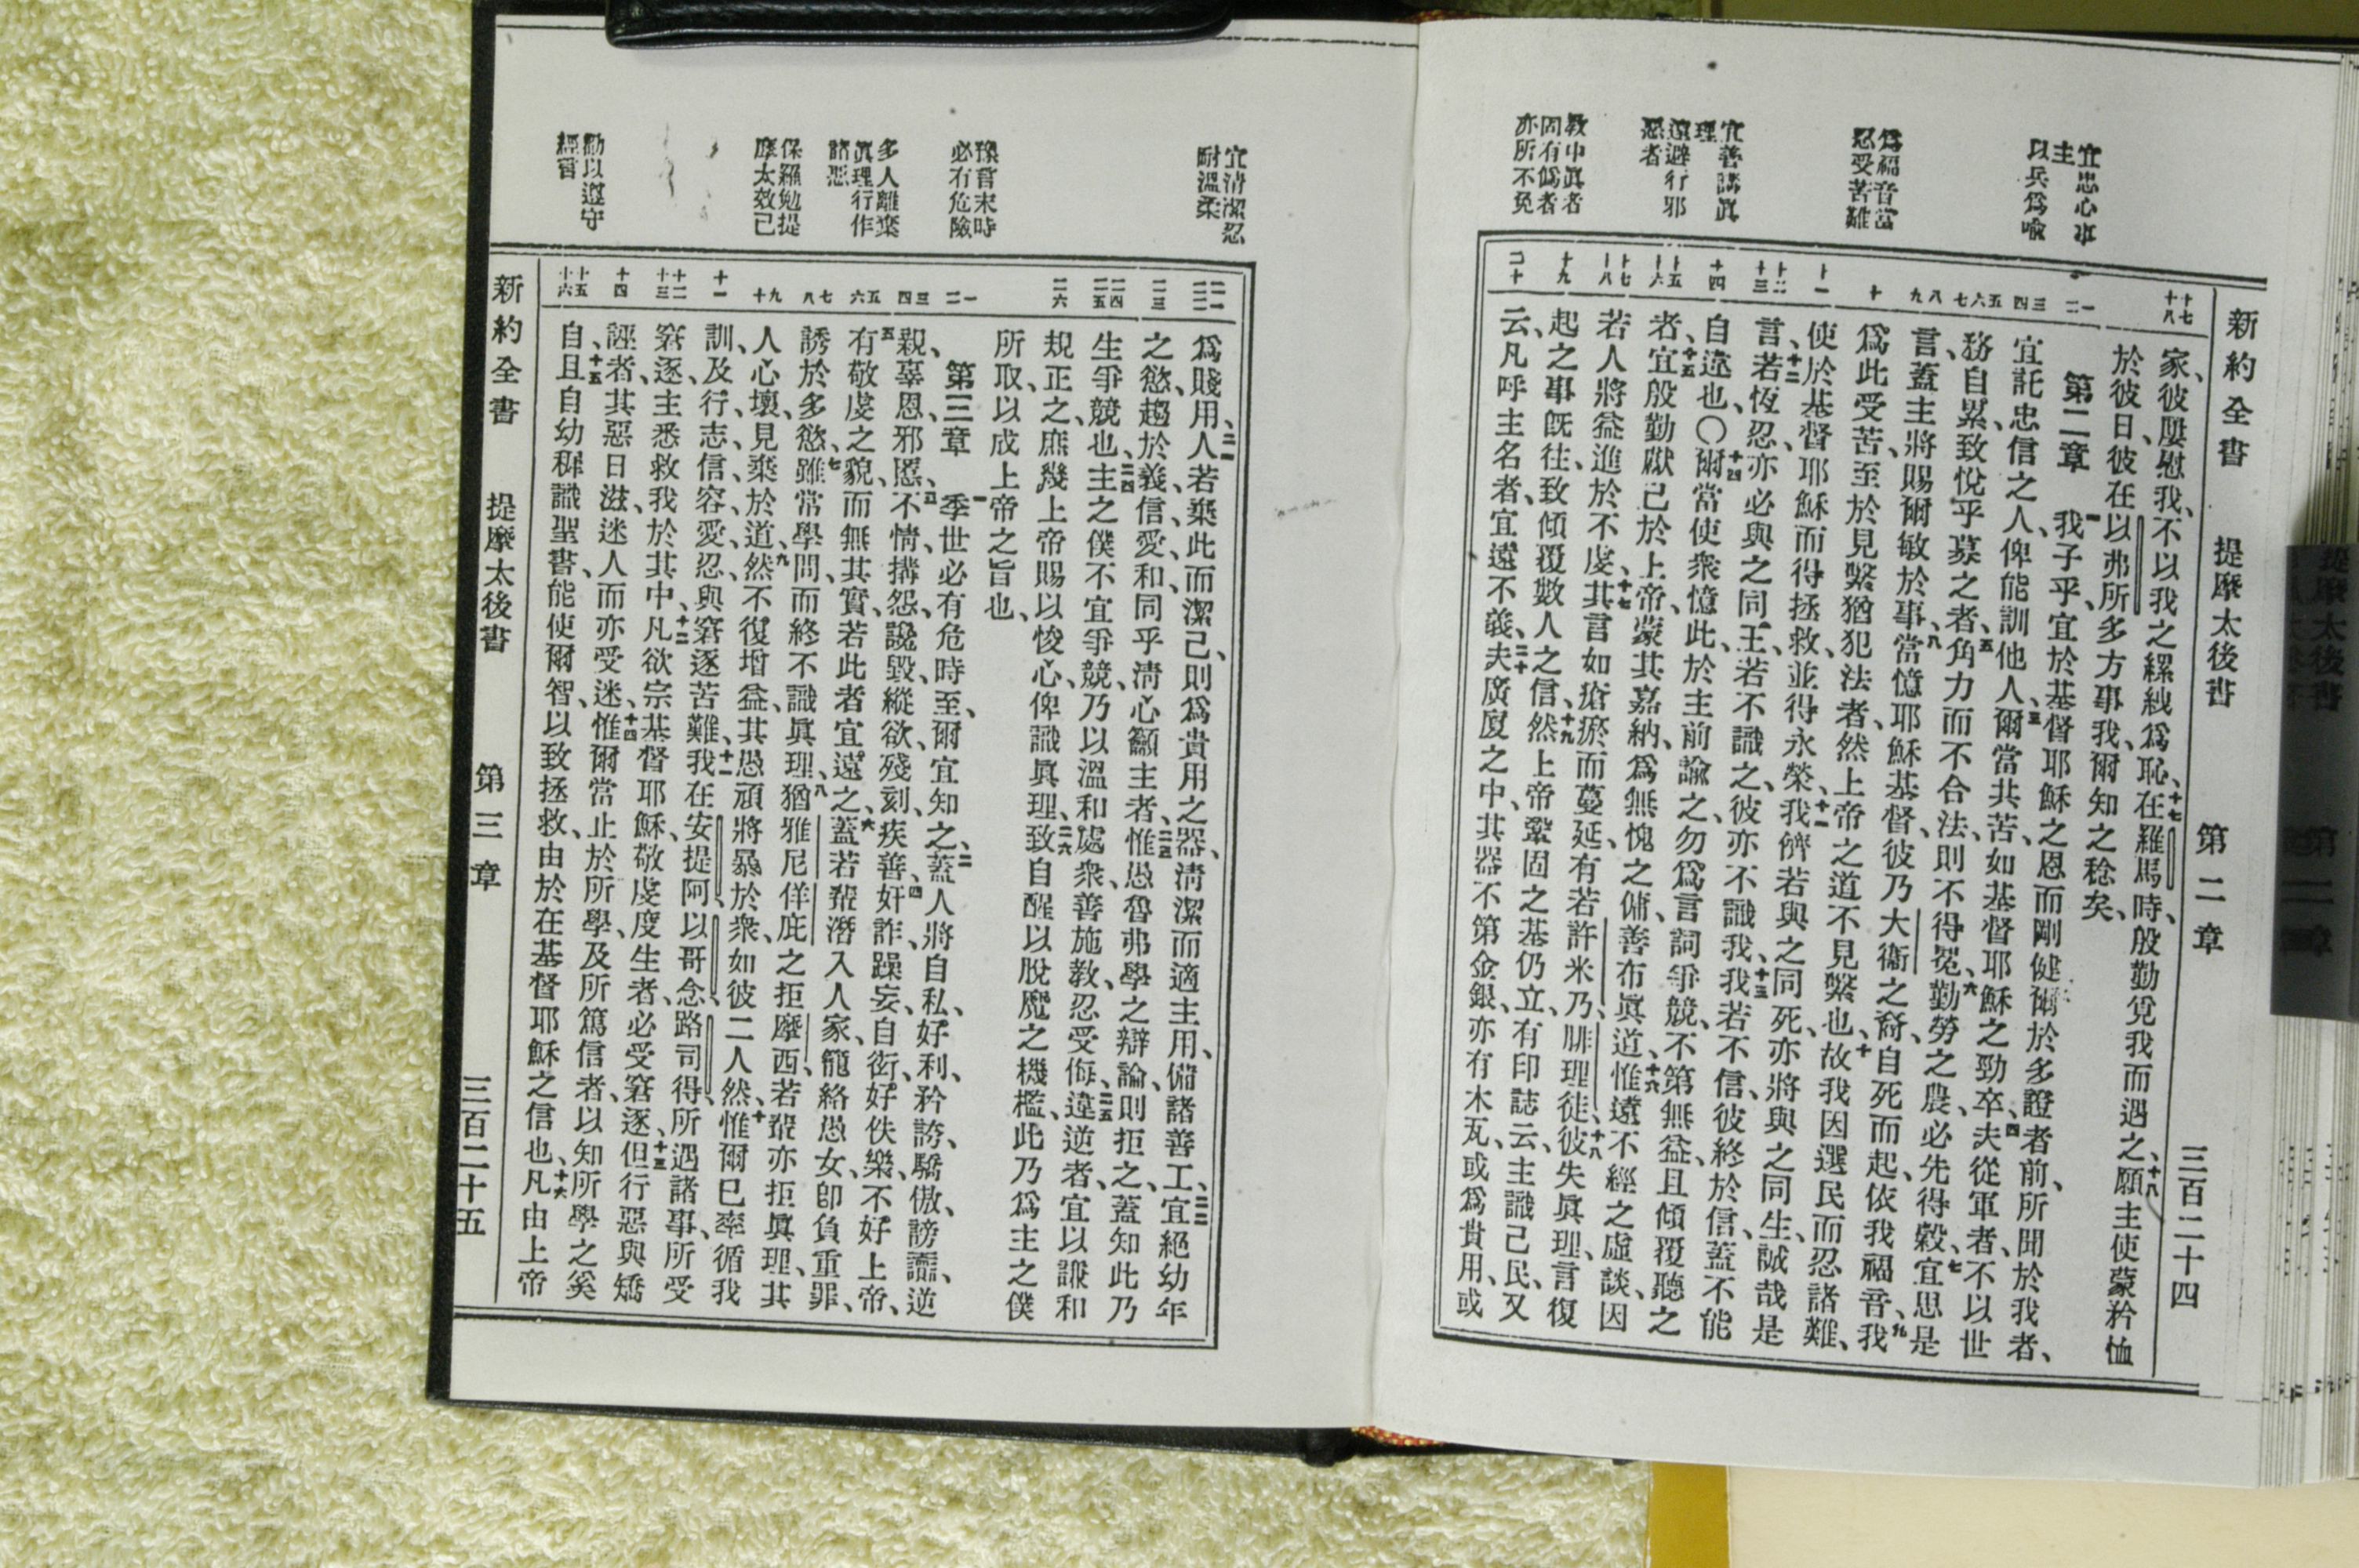 新約全書 提摩太後書 第二章 三百二十四
宜忠心事
主
以兵爲喻
爲福音當
忍受苦難
宜善講眞
理
遠避行邪
惡者
教中眞者
固有僞者
亦所不免
家、彼屢慰我、不以我之縲絏爲恥、十七在羅馬時、殷勤覓我而遇之、十八願主使蒙矜恤
於彼日、彼在以弗所多方事我、爾知之稔矣、
第二章 一我子乎、宜於基督耶穌之恩而剛健、爾於多證者前、所聞於我者、
宜託忠信之人、俾能訓他人、三爾當共苦、如基督耶穌之勁卒、四夫從軍者、不以世
務自累、致悅乎募之者、五角力而不合法、則不得冕、六勤勞之農、必先得穀、七宜思是
言、蓋主將賜爾敏於事、八當憶耶穌基督、彼乃大衞之裔、自死而起、依我福音、九我
爲此受苦、至於見繫猶犯法者、然上帝之道不見繫也、十故我因選民而忍諸難、
使於基督耶穌而得拯救、並得永榮、十一我儕若與之同死、亦將與之同生、誠哉是
言、十二若恆忍、亦必與之同王、若不識之、彼亦不識我、十三我若不信、彼終於信、蓋不能
自違也、〇十四爾當使衆憶此、於主前諭之、勿爲言詞爭競、不第無益、且傾覆聽之
者、十五宜殷勤獻己於上帝、蒙其嘉納、爲無愧之傭、善布眞道、十六惟遠不經之虛談、因
若人將益進於不虔、十七其言如瘡瘀而蔓延、有若許米乃、腓理徒、十八彼失眞理、言復
起之事旣往、致傾覆數人之信、十九然上帝鞏固之基仍立、有印誌云、主識己民、又
云、凡呼主名者、宜遠不義、二十夫廣廈之中、其器不第金銀、亦有木瓦、或爲貴用、或
宜清潔忍
耐溫柔
豫言末時
必有危險
多人離棄
眞理行作
諸惡
保羅勉提
摩太效己
勸以遵守
經言
爲賤用、二一人若棄此而潔己、則爲貴用之器、淸潔而適主用、備諸善工、二二宜絕幼年
之慾、趨於義、信、愛、和、同乎淸心籲主者、二三惟愚魯弗學之辯論則拒之、蓋知此乃
生爭競也、二四主之僕不宜爭競、乃以溫和處衆、善施敎、忍受侮、二五違逆者、宜以謙和
規正之、庶幾上帝賜以悛心、俾識眞理、二六致自醒以脫魔之機檻、此乃爲主之僕
所取、以成上帝之旨也、
第三章 一季世必有危時至、爾宜知之、二蓋人將自私、好利、矜誇、驕傲、謗讟、逆
親、辜恩、邪慝、三不情、搆怨、讒毀、縱欲、殘刻、疾善、四奸詐、躁妄、自衒、好佚樂、不好上帝、
五有敬虔之貌、而無其實、若此者宜遠之、六蓋若輩潛入人家、籠絡愚女、卽負重罪、
誘於多慾、七雖常學問、而終不識眞理、八猶雅尼佯庇之拒摩西、若輩亦拒眞理、其
人心壞、見棄於道、九然不復增益、其愚頑將暴於衆、如彼二人然、十惟爾已率循我
訓、及行、志、信、容、愛、忍、與窘逐苦難、十一我在安提阿、以哥念、路司得、所遇諸事、所受
窘逐、主悉救我於其中、十二凡欲宗基督耶穌、敬虔度生者、必受窘逐、十三但行惡與矯
誣者、其惡日滋、迷人而亦受迷、十四惟爾當止於所學、及所篤信者、以知所學之奚
自、十五且自幼穉識聖書、能使爾智、以致拯救、由於在基督耶穌之信也、十六凡由上帝
新約全書 提摩太後書 第三章 三百二十五